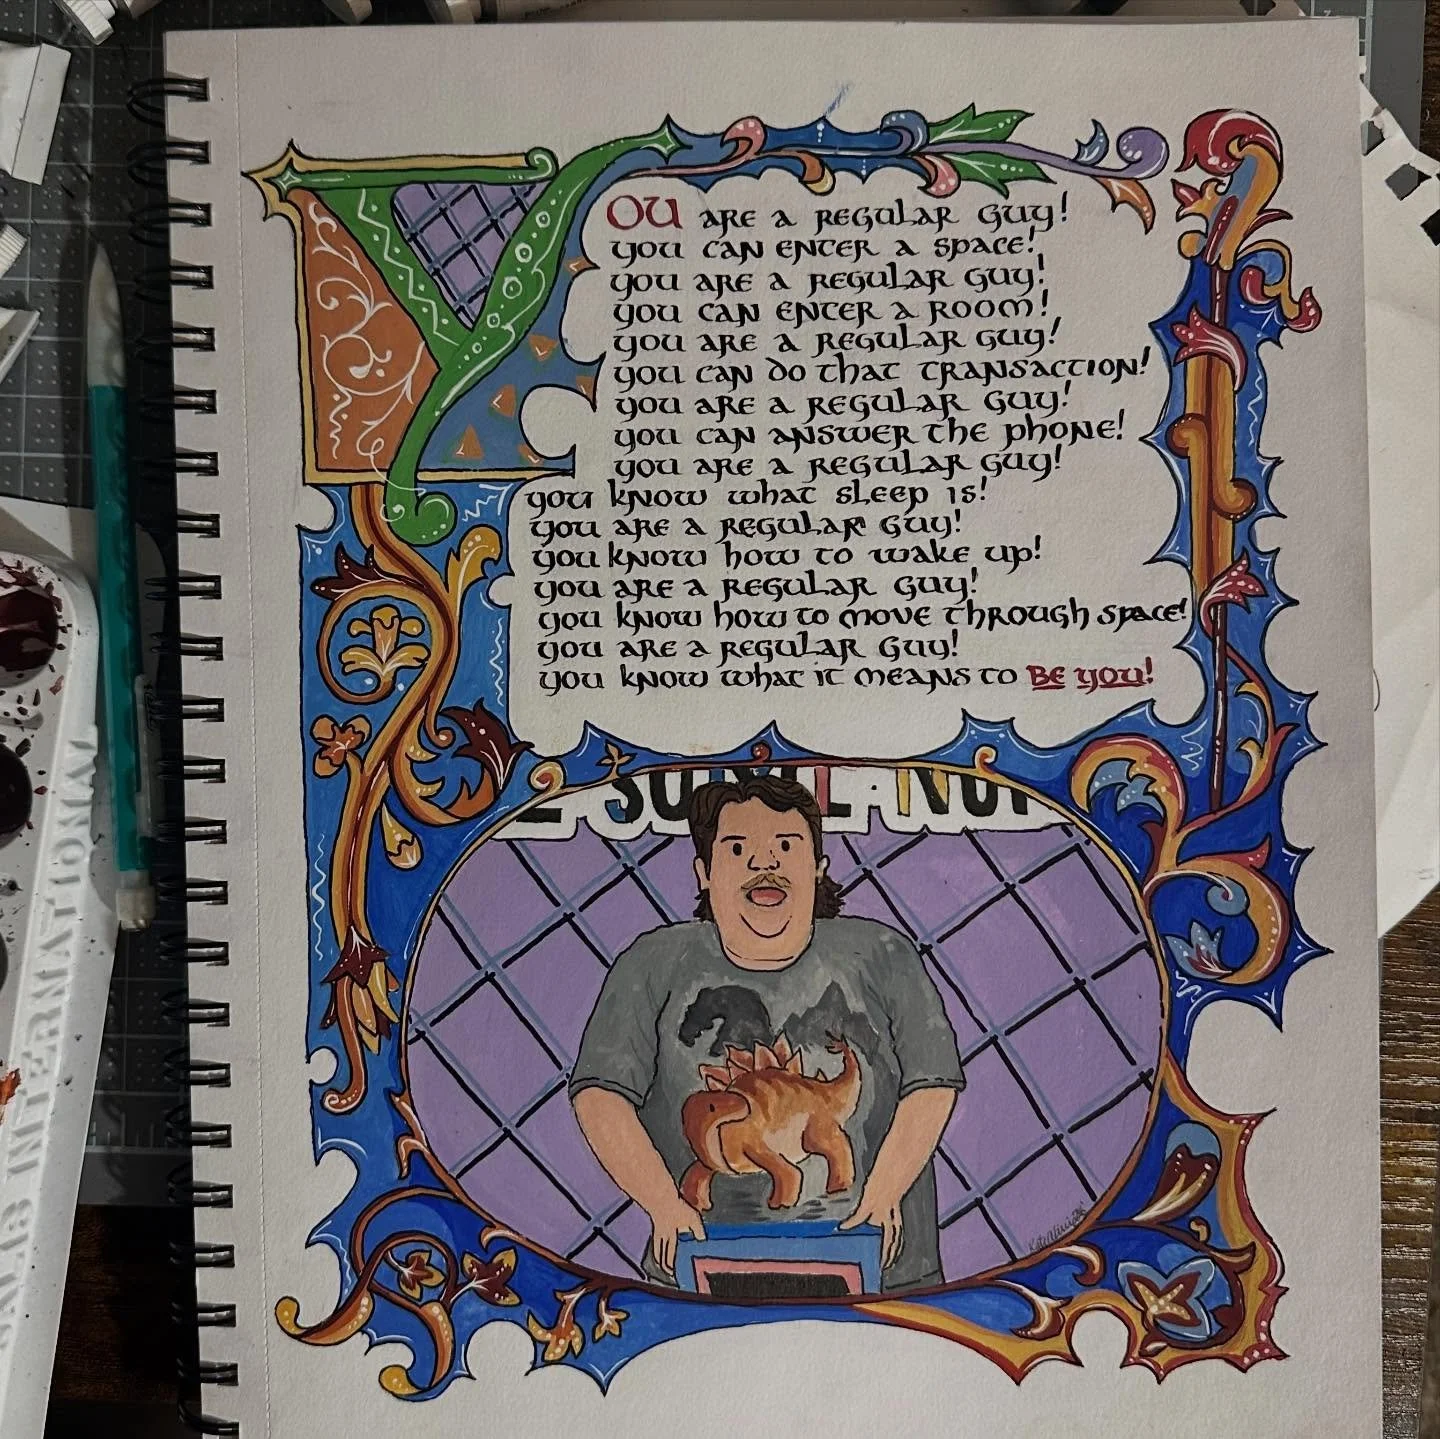 YOU ARE A REGULAR GUY!
YOU CAN ENTER A SPACE!
YOU ARE A REGULAR GUY!
YOU CAN ENTER A ROOM!
YOU ARE A REGULAR GUY!
YOU CAN DO THAT TRANSACTION!
YOU ARE A REGULAR GUY!
YOU CAN ANSWER THE PHONE!
YOU ARE A REGULAR GUY!
YOU KNOW WHAT SLEEP IS!
YOU ARE A REGULAR GUY!
YOU KNOW HOW TO WAKE UP!
YOU ARE A REGULAR GUY!
YOU KNOW HOW TO MOVE THROUGH SPACE!
YOU ARE A REGULAR GUY!
YOU KNOW WHAT IT MEANS TO BE YOU!